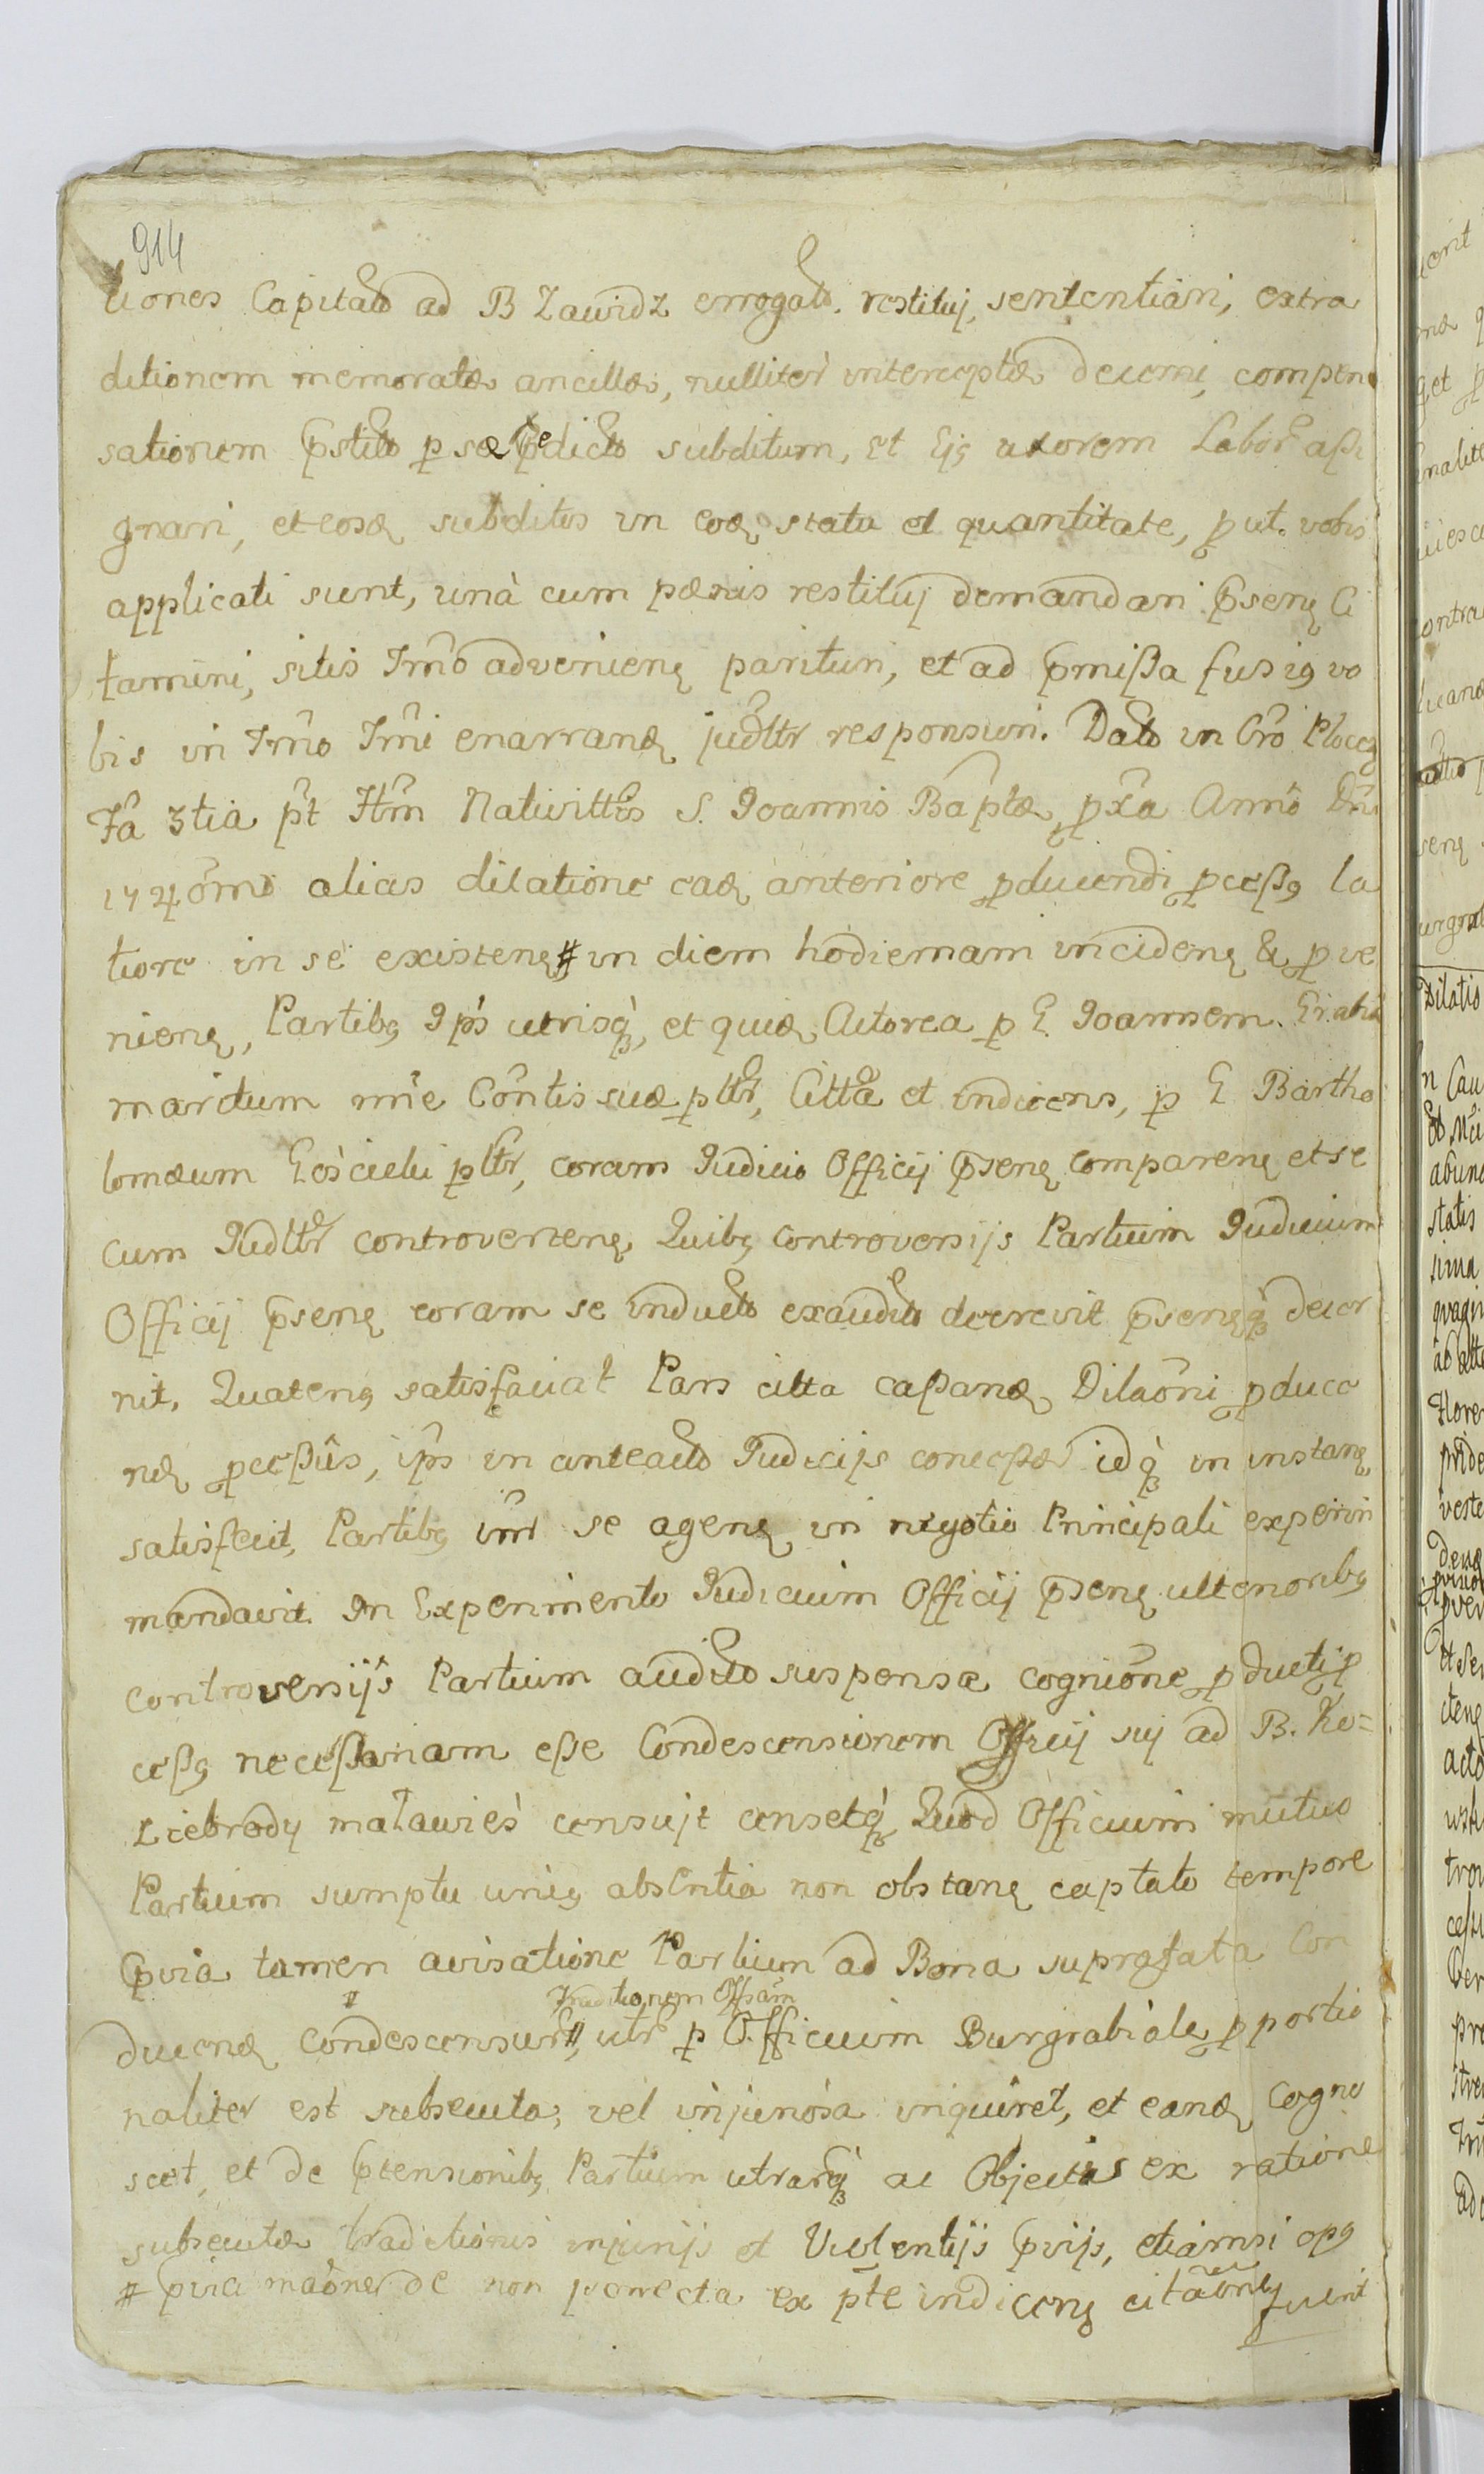 914
tiones Capitalo ad B Zawidz errogato. restituj, sententiari, extra
ditionem memoratæ ancillæ, nulliter interceptæ decerni, compen
satiorem p̃stito p se p̃edicto subditum, et Ejꝯ uxorem Labor aßi
gnari, et eosđ subditos in eođ statu et quantitate, put. vobis
applicati sunt, unà cum pænis restituj demandari p̃senꝫ Ci
tamini, sitis Tr̃mo advenienꝫ parituri, et ad p̃mißa fusiꝯ vo
bis in Tr̃mo Tr̃mi enarranđ judltr responsuri. Dato in Cr̃o Plocen
Fã 3tia pt̃ Ftm̃ Nativittis S. Joannis Baptæ, pxã Anno Dni
1724om̃o alias dilatione eađ anteriore pducendi pceßꝯ la
tiore in se existenꝫ # in diem hodiernam incidenꝫ & pve
nienꝫ, Partibꝯ Ips̃ utrisq̃, et quiđ Actorea p E Joannem
maritum mr̃ie Con̂tis suæ pltr, Citta et indicens, p E Bartho
lomæum Gościcki pltr, coram Judicio Officij p̃senꝫ comparenꝫ et se
cum Judltr controvertenꝫ, Quibꝯ controversijs Partium Judicium
Officij p̃senꝫ coram se inducto exaudito decrevit p̃senꝫq̃ decer
nit, Quatenꝯ satisfaciat Pars citta caßanđ Dilaõni pduce
nđ pceßûs, ips̃ in anteacto Judicijs conceßæ idq̃ in instanꝫ
satisfecit, Partibꝯ im̃r se agenꝫ in negotio Principali experiri
mandavit. In Experimento Judicium Officij p̃senꝫ ulterioribꝯ
controversijs Partium audito suspensa cognione pducti p
ceßꝯ neceßariam eße Condescensionem Officij sui ad B. Ko=
ziebrody maławieś censujt censetq̃ Quod Officium mutuo
Partium sumptu uniꝯ absentia non obstanꝫ captato tempore
p̃via tamen avisatione Partium ad Bona suprafata Con
# Traditionem Oppam̃
ducenđ condescensur #, utr p Officium Burgrabiale pportio
naliter est subsecuta, vel injuriosa inquiret, et eanđ cogno
scet, et de p̃tensionibꝯ Partium utrarq̃ ac Objectis ex ratione
subsecutæ traditionis injurijs et Violentijs p̃vijs, etiamsi opꝯ
# p̃via maõne de non porrecta ex pte indicenꝫ citaõne fuerit